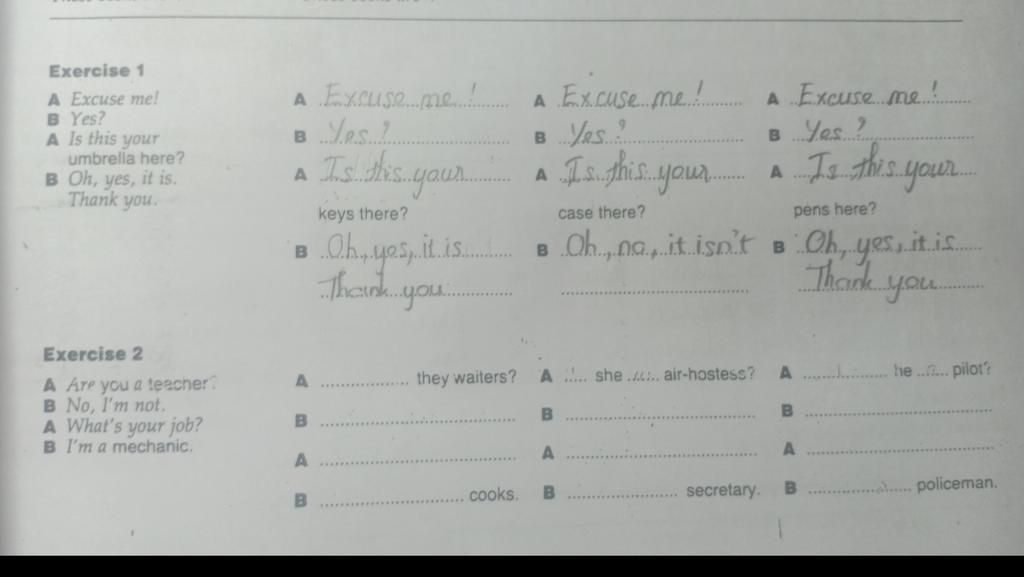 Exercise 1
A Excuse me!
B Yes?
A Is this your
umbrella here?
B Oh, yes, it is.
Thank you.
A Excuse me!
B Yes?
A Is this your
keys there?
B Oh, yes, it is
Thank you
A Excuse me!
B Yes?
A Is this your
case there?
B Oh, no, it isn't
A Excuse me!
B Yes?
A Is this your
pens here?
B Oh, yes, it is
Thank you
Exercise 2
A Are you a teacher?
B No, I'm not.
A What's your job?
B I'm a mechanic.
A ................. they waiters?
B
A
B ................. cooks.
A ..... she ...... air-hostess?
B
A
B ................. secretary.
A ................. he ...... pilot?
B
A
B ................. policeman.